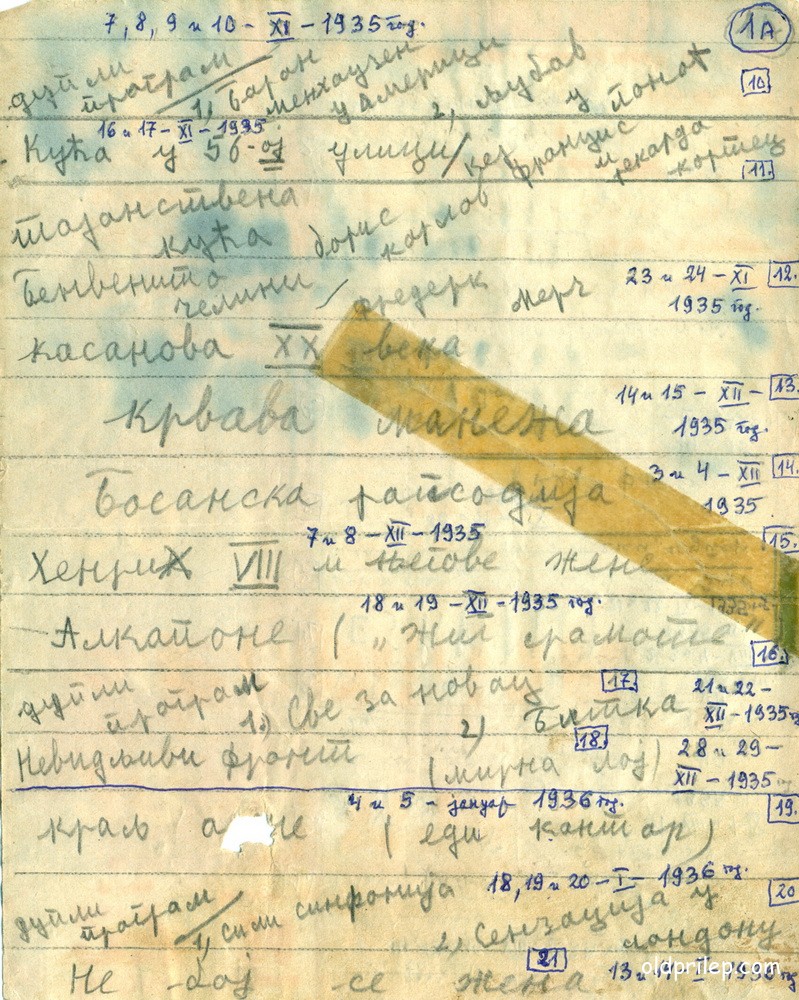 7, 8, 9 и 10 - XI - 1935 год.
1A
дупли програм 1, Барон менхаузен у америци 2, љубав у понот
10
16 и 17 - XI - 1935
Кућа у 56-ој улици / кег францис
11.
тајанствена кућа борис корлов
Бенвенито челини / фредерк мерч
23 и 24 - XI 1935 год.
12.
касанова XX века
14 и 15 - XII - 1935 год.
13.
крвава манежа
3 и 4 - XII 1935
14.
Босанска рапсодија
7 и 8 - XII - 1935
15.
Хенрих VIII и његове жене
18 и 19 - XII - 1935 год.
Алкапоне ( „ жиг срамоте "
16.
дупли програм 1.) Све за новац 2) Битка
17.
21 и 22 - XII - 1935 год
Невидљиви фронт (мирна лој)
18.
28 и 29 - XII - 1935
4 и 5 - јануар 1936 год.
19.
краљ (еди кантор)
18, 19 и 20 - I - 1936 год.
20
дупли програм 1, сили синфонија 2, Сензација у лондону
21
Не бој се жена.
oldprilep.com